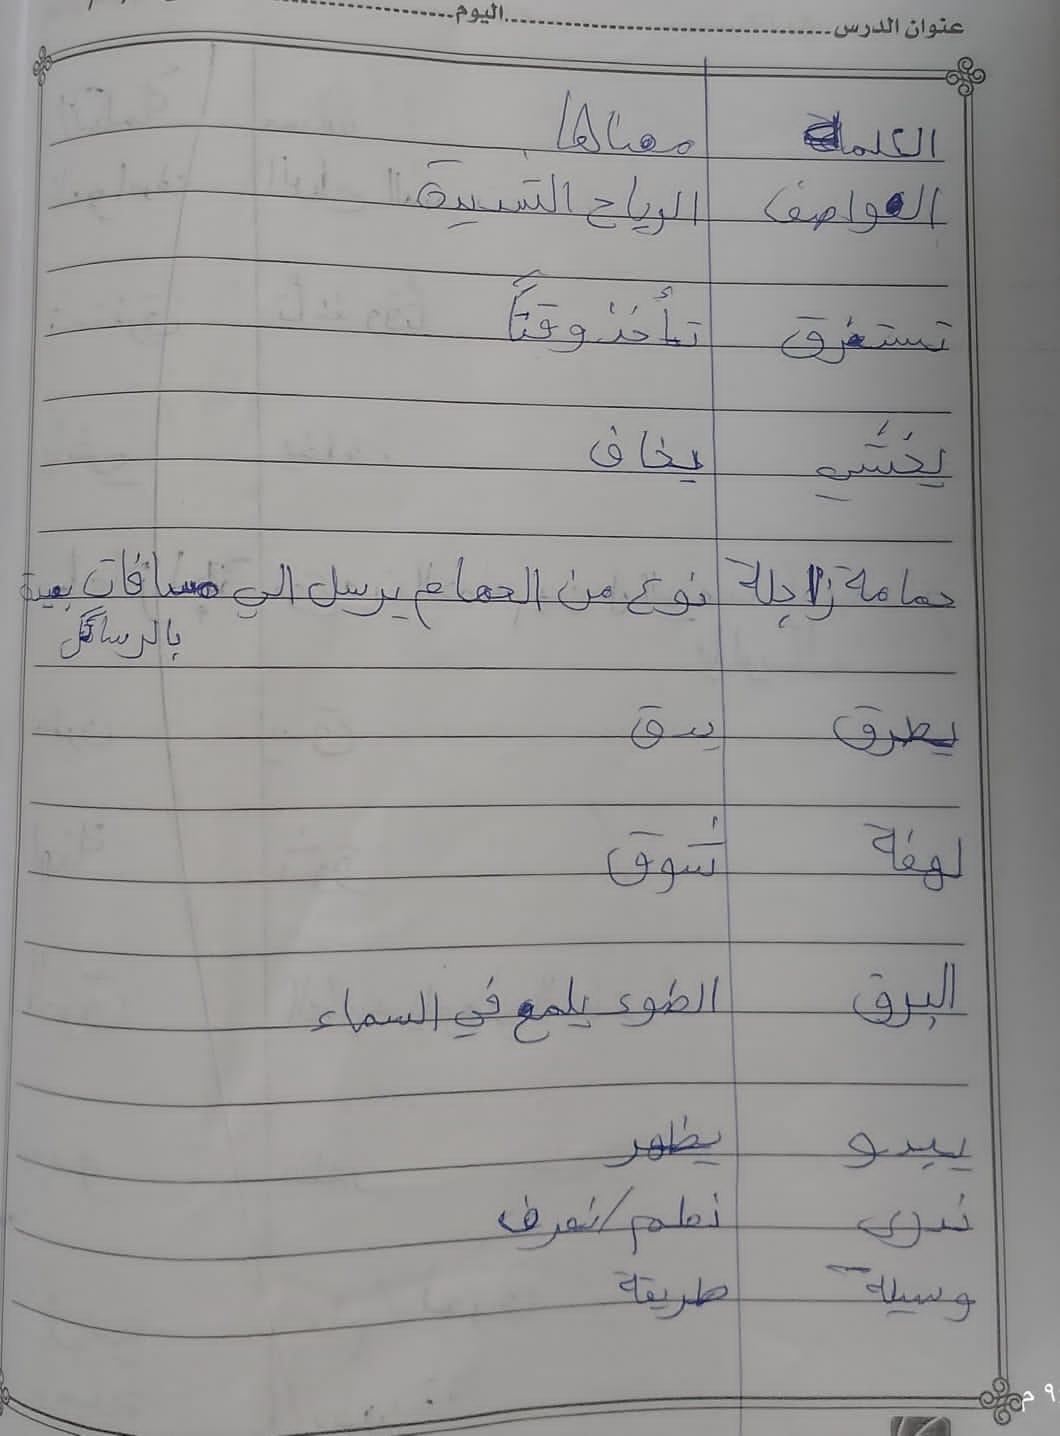 عنوان الدرس اليوم
الكلمة معناها
العواصف الرياح الشديدة
تستغرق تأخذ وقتاً
يخشي يخاف
حمامة زاجلة نوع من الحمام يرسل الي مسافات بعيدة
بالرسائل
يطرق يدق
لهفة شوق
البرق الطوء يلمع في السماء
يبدو يظهر
ندرى نعلم/نعرف
وسيلة طريقة
٩ م